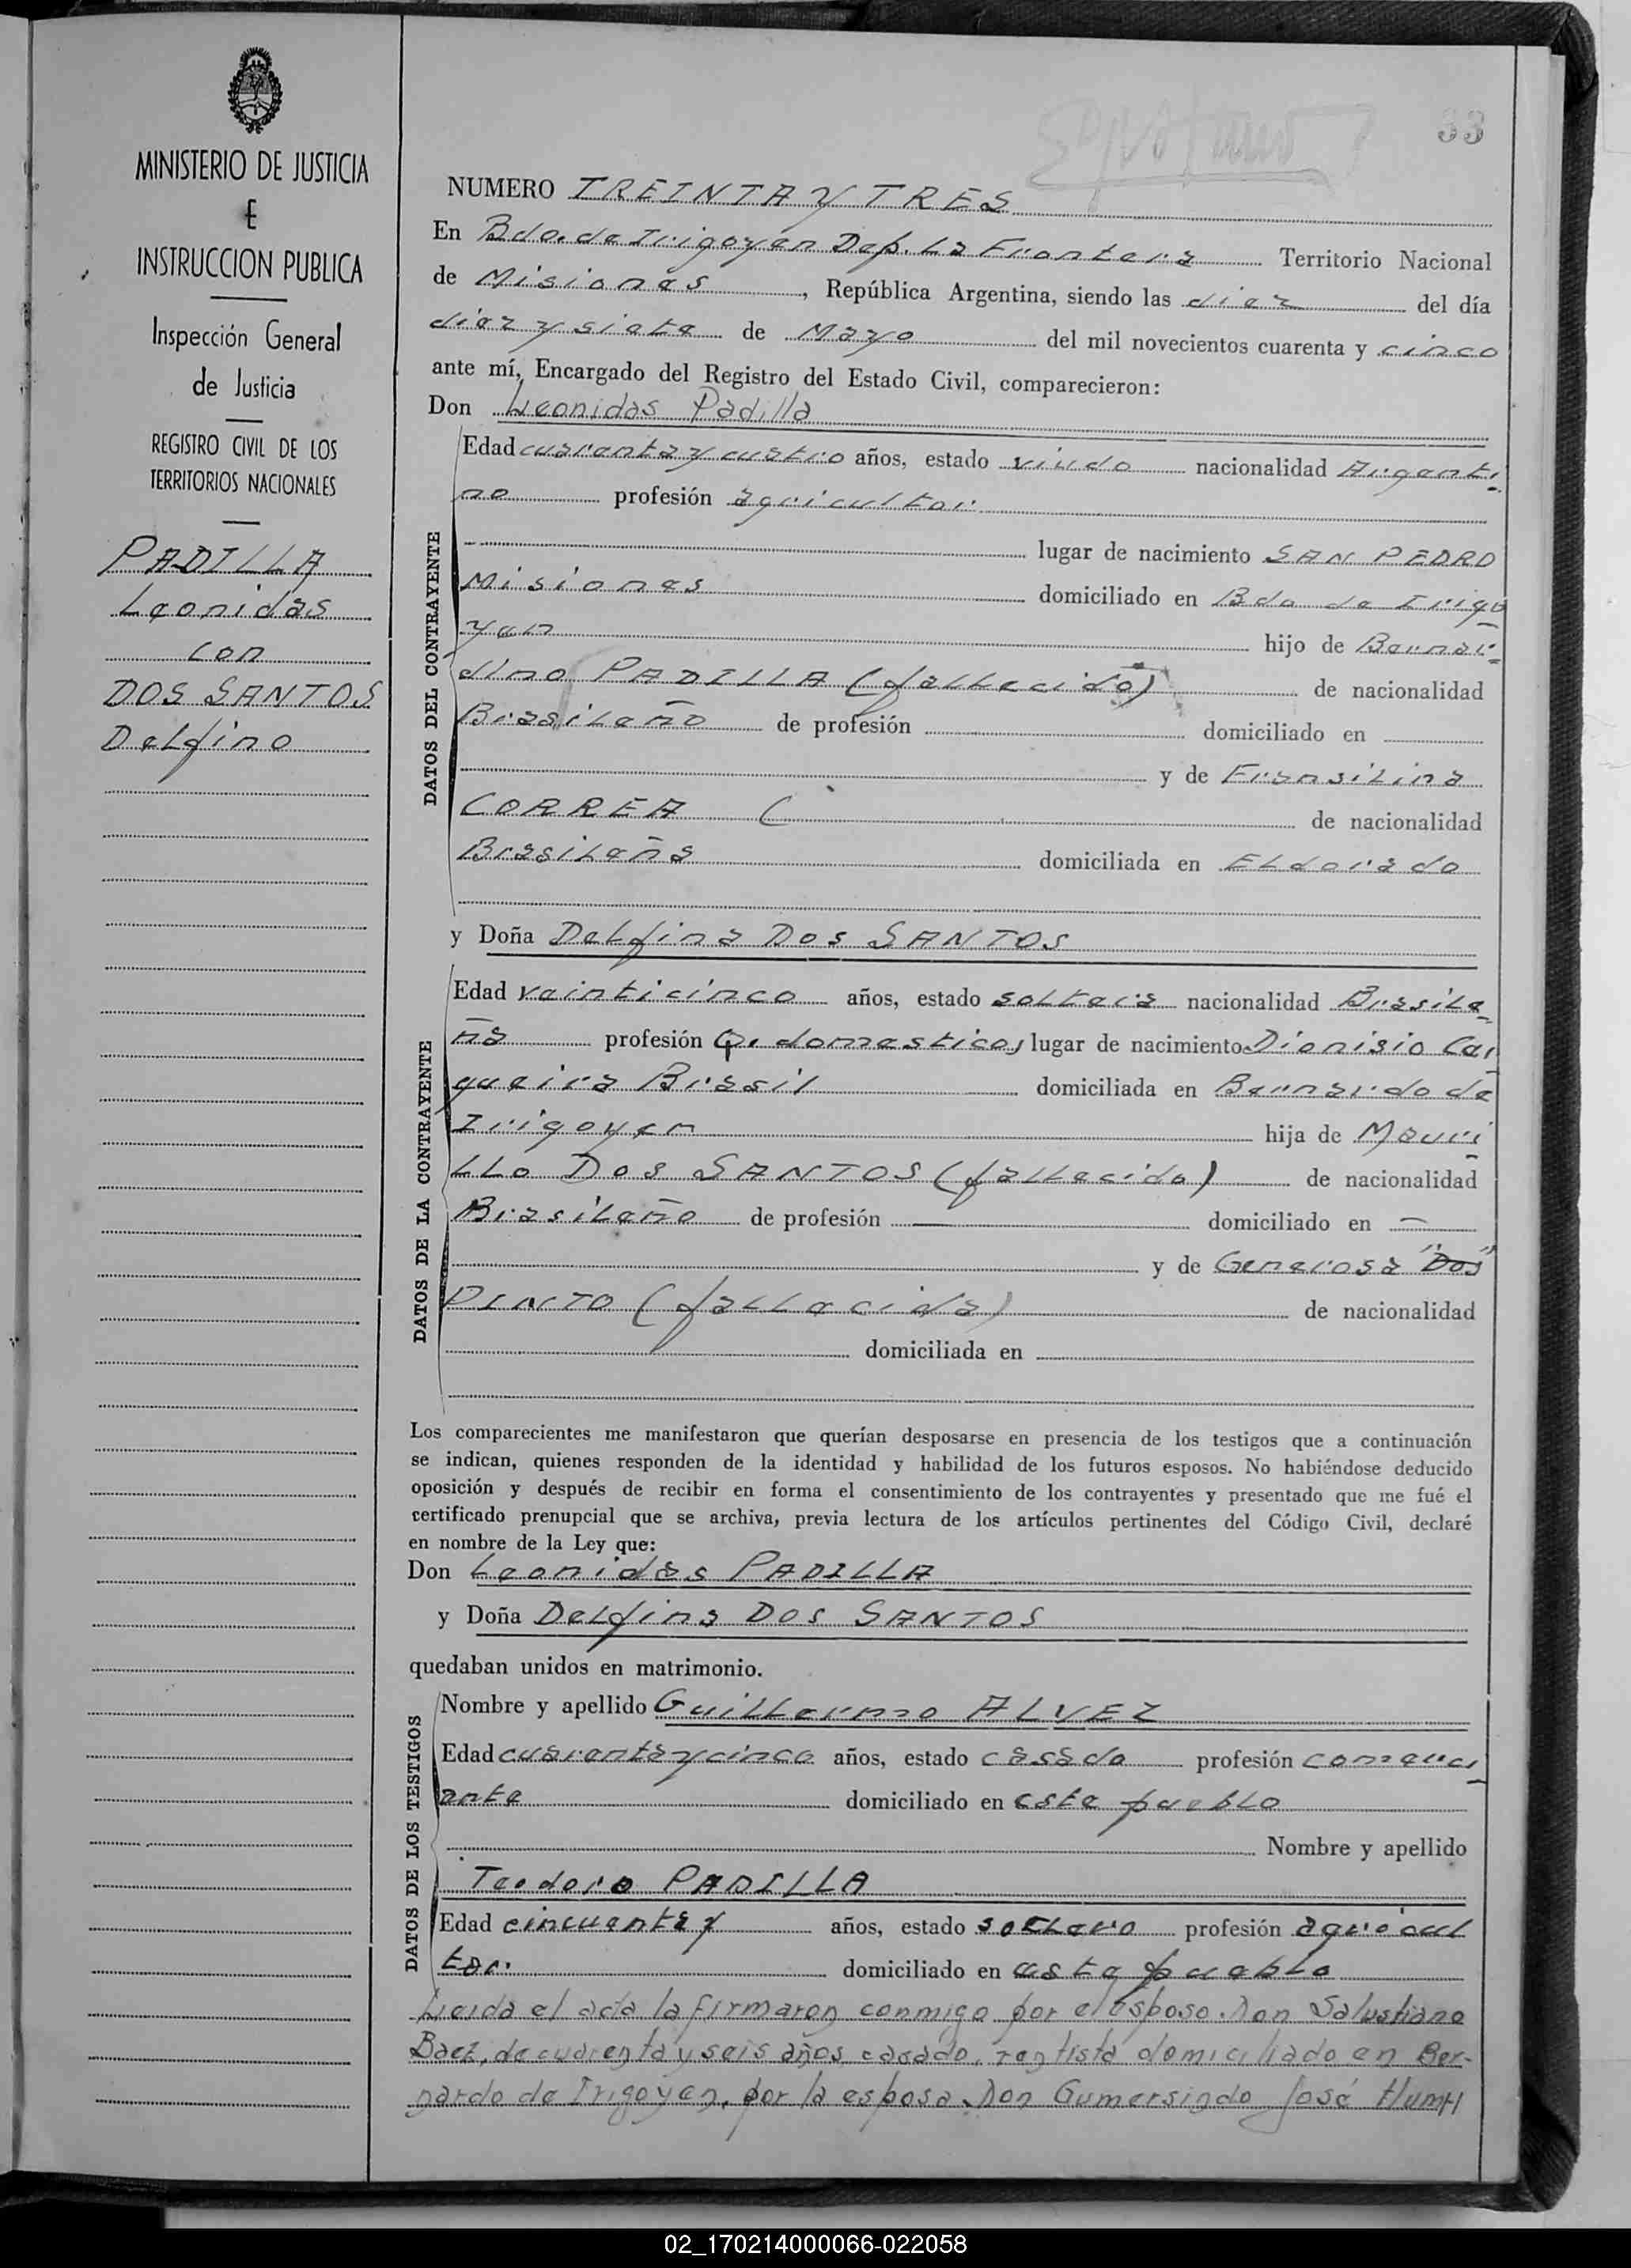 33
MINISTERIO DE JUSTICIA
E
INSTRUCCION PUBLICA
Inspección General
de Justicia
REGISTRO CIVIL DE LOS
TERRITORIOS NACIONALES
PADILLA
Leonidas
con
DOS SANTOS
Delfino
NUMERO TREINTA Y TRES
En Bdo. de Irigoyen Dep. La Frontera Territorio Nacional
de Misiones, República Argentina, siendo las diez del día
diez y siete de Mayo del mil novecientos cuarenta y cinco
ante mí, Encargado del Registro del Estado Civil, comparecieron:
Don Leonidas Padilla
DATOS DEL CONTRAYENTE
Edad cuarenta y cuatro años, estado viudo nacionalidad Argenti-
no profesión agricultor
lugar de nacimiento SAN PEDRO
Misiones domiciliado en Bdo de Irigo
yen hijo de Bernar-
dino PADILLA (fallecido) de nacionalidad
Brasileño de profesión domiciliado en
y de Fransilina
CORREA ( de nacionalidad
Brasileña domiciliada en Eldorado
y Doña Delfina Dos SANTOS
DATOS DE LA CONTRAYENTE
Edad veinticinco años, estado soltera nacionalidad Brasile-
ña profesión Q. domesticos lugar de nacimiento Dionisio Cer-
queira Brasil domiciliada en Bernardo de
Irigoyen hija de Mauri-
LLo Dos SANTOS (fallecido) de nacionalidad
Brasileño de profesión — domiciliado en —
y de Generosa "Dos"
PINTO (fallecida) de nacionalidad
domiciliada en
Los comparecientes me manifestaron que querían desposarse en presencia de los testigos que a continuación
se indican, quienes responden de la identidad y habilidad de los futuros esposos. No habiéndose deducido
oposición y después de recibir en forma el consentimiento de los contrayentes y presentado que me fué el
certificado prenupcial que se archiva, previa lectura de los artículos pertinentes del Código Civil, declaré
en nombre de la Ley que:
Don Leonidas PADILLA
y Doña Delfina Dos SANTOS
quedaban unidos en matrimonio.
DATOS DE LOS TESTIGOS
Nombre y apellido Guillermo ALVEZ
Edad cuarenta y cinco años, estado casado profesión comerci-
ante domiciliado en este pueblo
Nombre y apellido
Teodoro PADILLA
Edad cincuenta y años, estado soltero profesión agricul
tor. domiciliado en este pueblo
Leida el acta la firmaron conmigo por el esposo Don Salustiano
Baez, de cuarenta y seis años casado, rentista domiciliado en Ber-
nardo de Irigoyen, por la esposa Don Gumersindo José
02_170214000066-022058